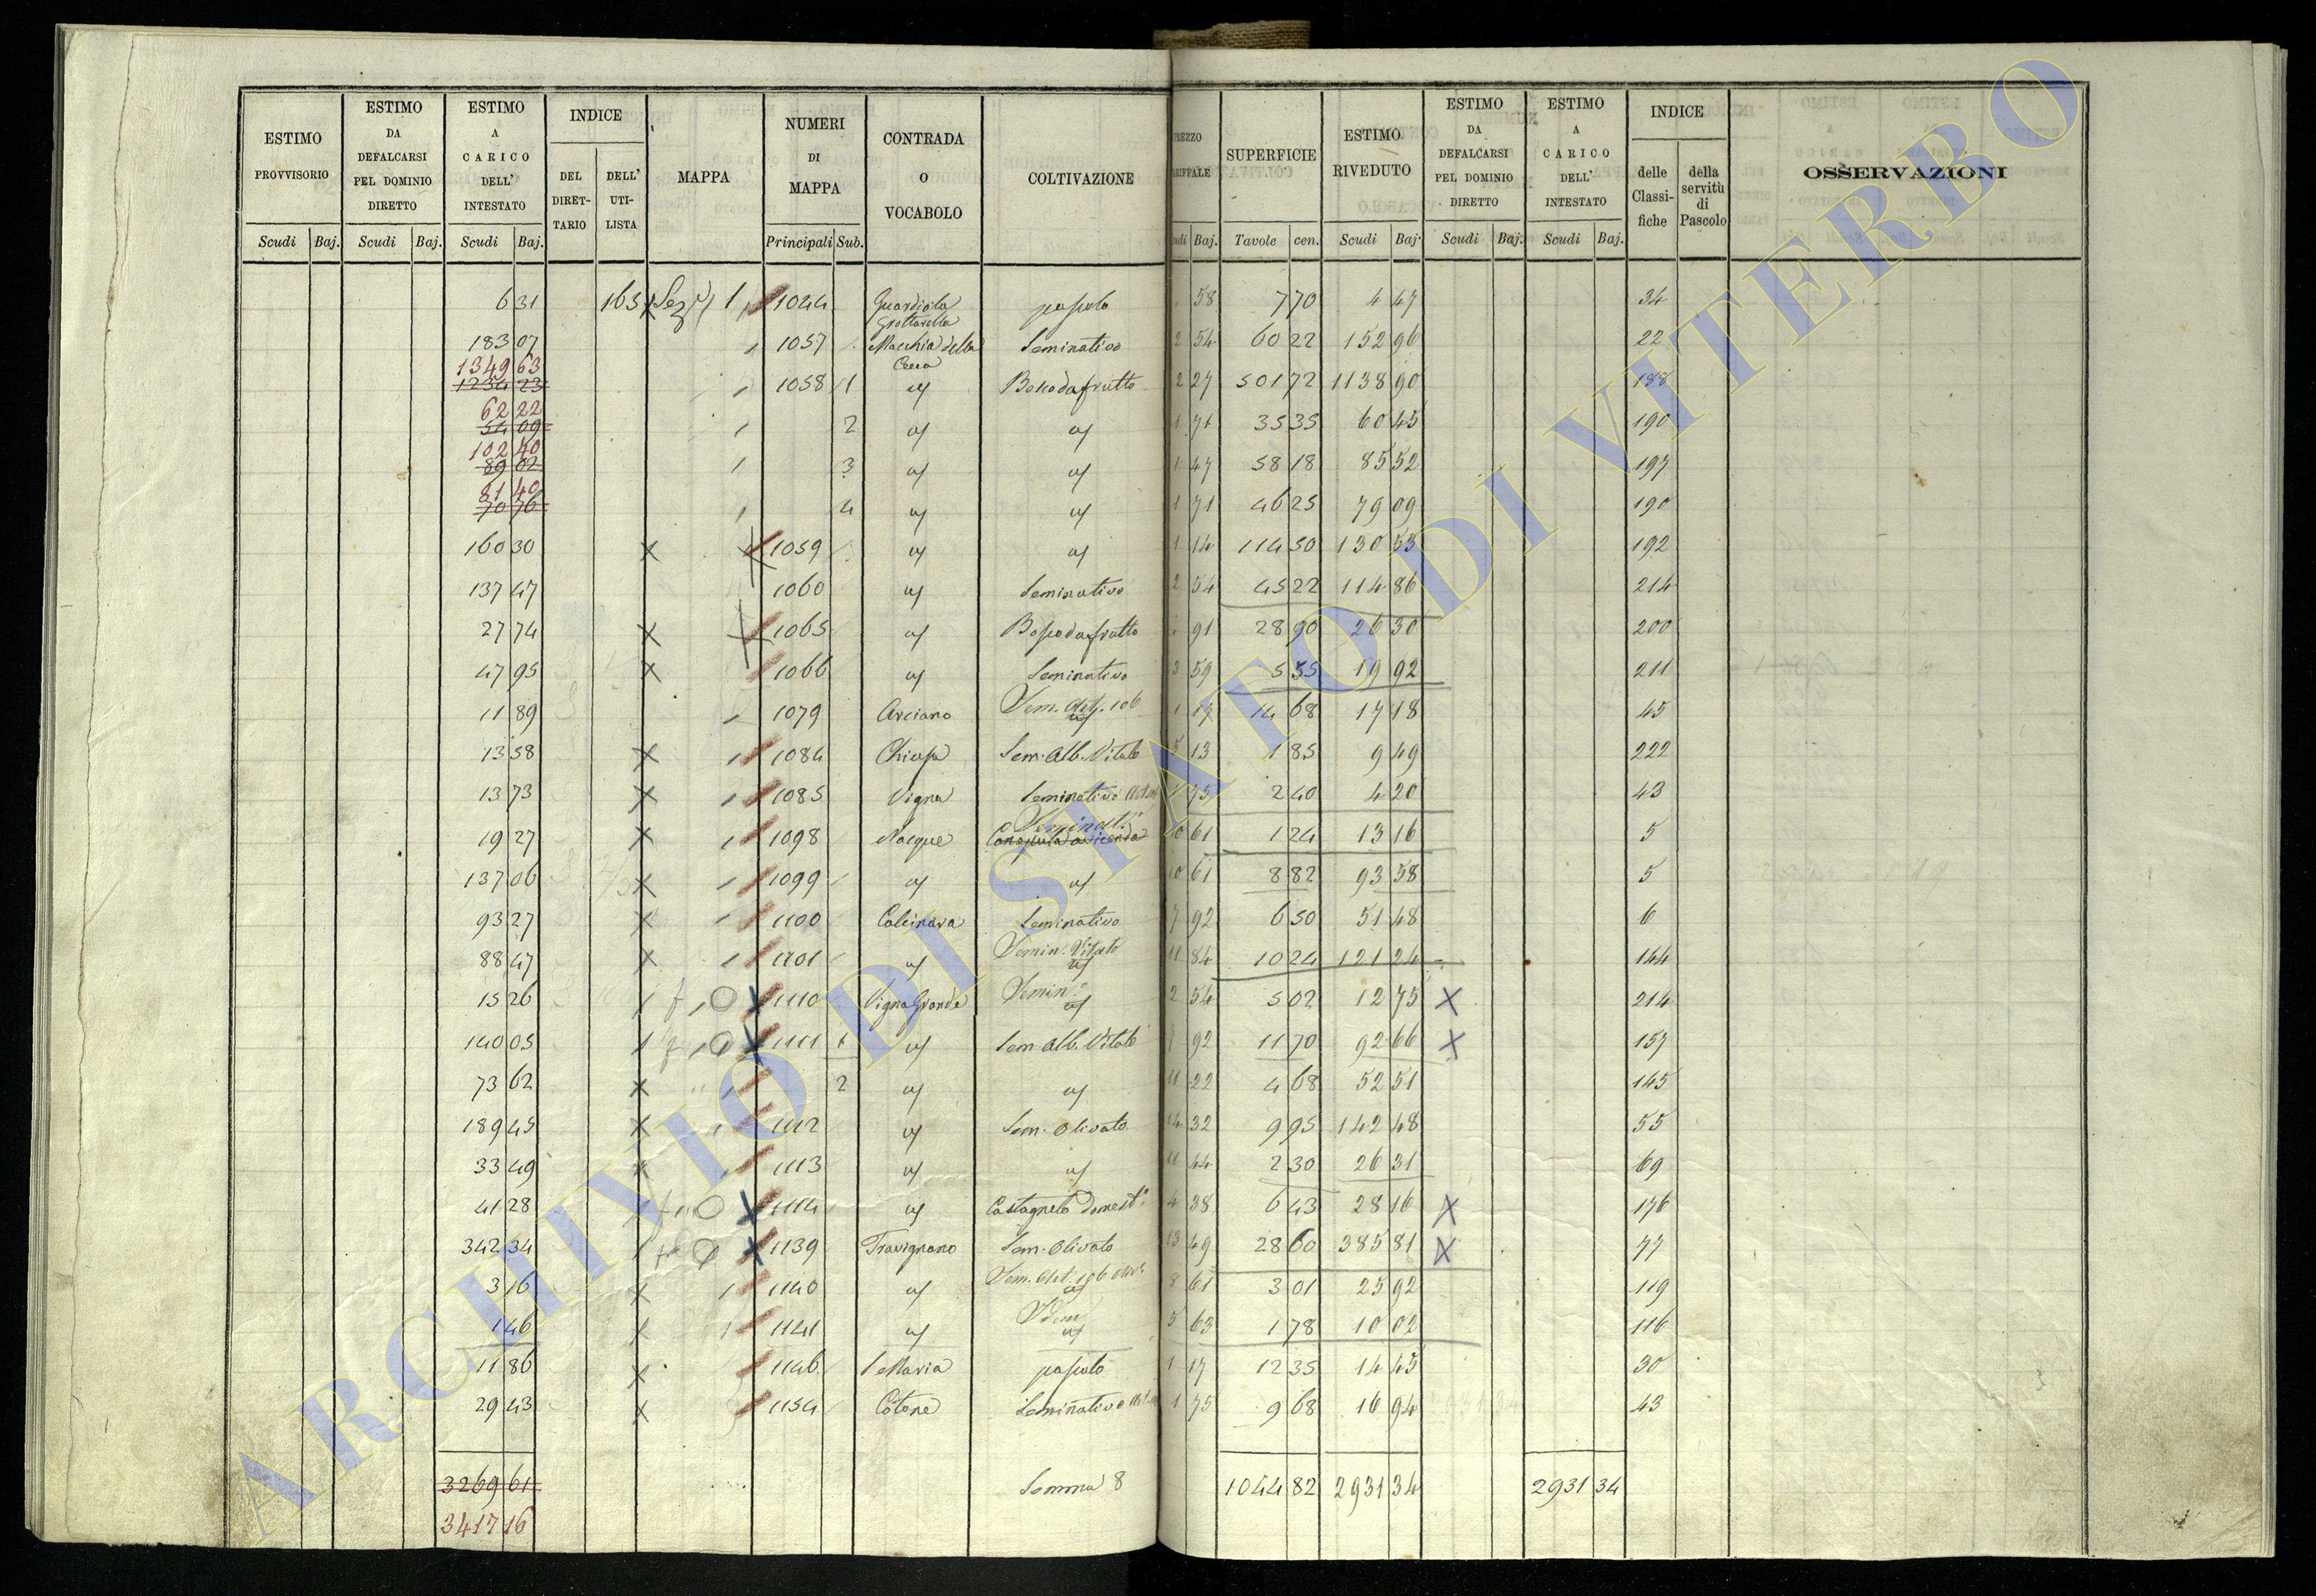 ESTIMO PROVVISORIO | ESTIMO DA DEFALCARSI PEL DOMINIO DIRETTO | ESTIMO A CARICO DELL' INTESTATO | INDICE DEL DIRET-TARIO | DELL' UTI-LISTA | MAPPA | NUMERI DI MAPPA | CONTRADA O VOCABOLO | COLTIVAZIONE | SUPERFICIE | ESTIMO RIVEDUTO | ESTIMO DA DEFALCARSI PEL DOMINIO DIRETTO | ESTIMO A CARICO DELL' INTESTATO | INDICE delle Classi-fiche | della servitù di Pascolo | OSSERVAZIONI
Scudi | Baj. | Scudi | Baj. | Scudi | Baj. | Principali | Sub. | Baj. | Tavole | cen. | Scudi | Baj. | Scudi | Baj. | Scudi | Baj.
6 31 163 Sez 1 1044 Guardiola Grottarella pascolo 58 7 70 4 47 34
183 07 1057 Macchia della seminativo 2 54 60 22 152 96 22
1349 63
1234 23 1058 1 Bosco da frutto 2 27 501 72 1138 90 188
62 22
54 09 2 1 71 35 35 60 45 190
102 40
89 02 3 1 47 58 18 85 52 197
81 40
70 76 4 1 71 46 25 79 09 190
160 30 x 1059 1 14 114 50 130 53 192
137 47 1060 seminativo 2 54 45 22 114 86 214
27 74 x 1065 Bosco da frutto 91 28 90 26 30 200
47 95 x 1066 seminativo 3 59 5 55 19 92 211
11 89 1079 Arciano 1 17 14 68 17 18 45
13 58 x 1084 Chiusa Sem. Alb. Vitato 5 13 1 85 9 49 222
13 73 x 1085 Vigna seminativo 75 2 40 4 20 43
19 27 x 1098 Nacque 10 61 1 24 13 16 5
137 06 x 1099 10 61 8 82 93 58 5
93 27 x 1100 Calcinara seminativo 7 92 6 50 51 48 6
88 47 x 1101 Semin. Vitato 11 84 10 24 121 24 144
15 26 1110 Vigna Grande Semin.° 2 54 5 02 12 75 x 214
140 05 1111 1 Sem. Alb. Vitato 92 11 70 92 66 x 157
73 62 x 2 11 22 4 68 52 51 145
189 45 x 1112 Sem. Olivato 14 32 9 95 142 48 55
33 49 x 1113 11 44 2 30 26 31 69
41 28 1114 Castagneto domest.° 4 38 6 43 28 16 x 176
342 34 1139 Travignano Sem. Olivato 13 49 28 60 385 81 x 77
3 16 x 1140 8 61 3 01 25 92 119
1 46 1141 Idem 5 63 1 78 10 02 116
11 86 x 1146 S Maria pascolo 1 17 12 35 14 45 30
29 43 x 1154 Cotone seminativo 1 75 9 68 16 94 43
3269 61 Somma 8 1044 82 2931 34 2931 34
3417 16
ARCHIVIO DI STATO DI VITERBO